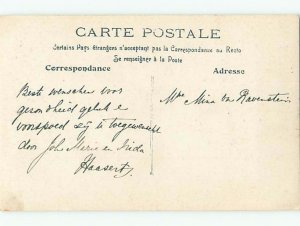 CARTE POSTALE
Certains Pays étrangers n'acceptant pas la Correspondance au Recto
Se renseigner à la Poste
Correspondance
Adresse
Beste wenschen voor
gezondheid geluk e
voorspoed zij u toegewenscht
door Joh. Marie en Frida
Haasert
Mlle Mina von Ravenstein